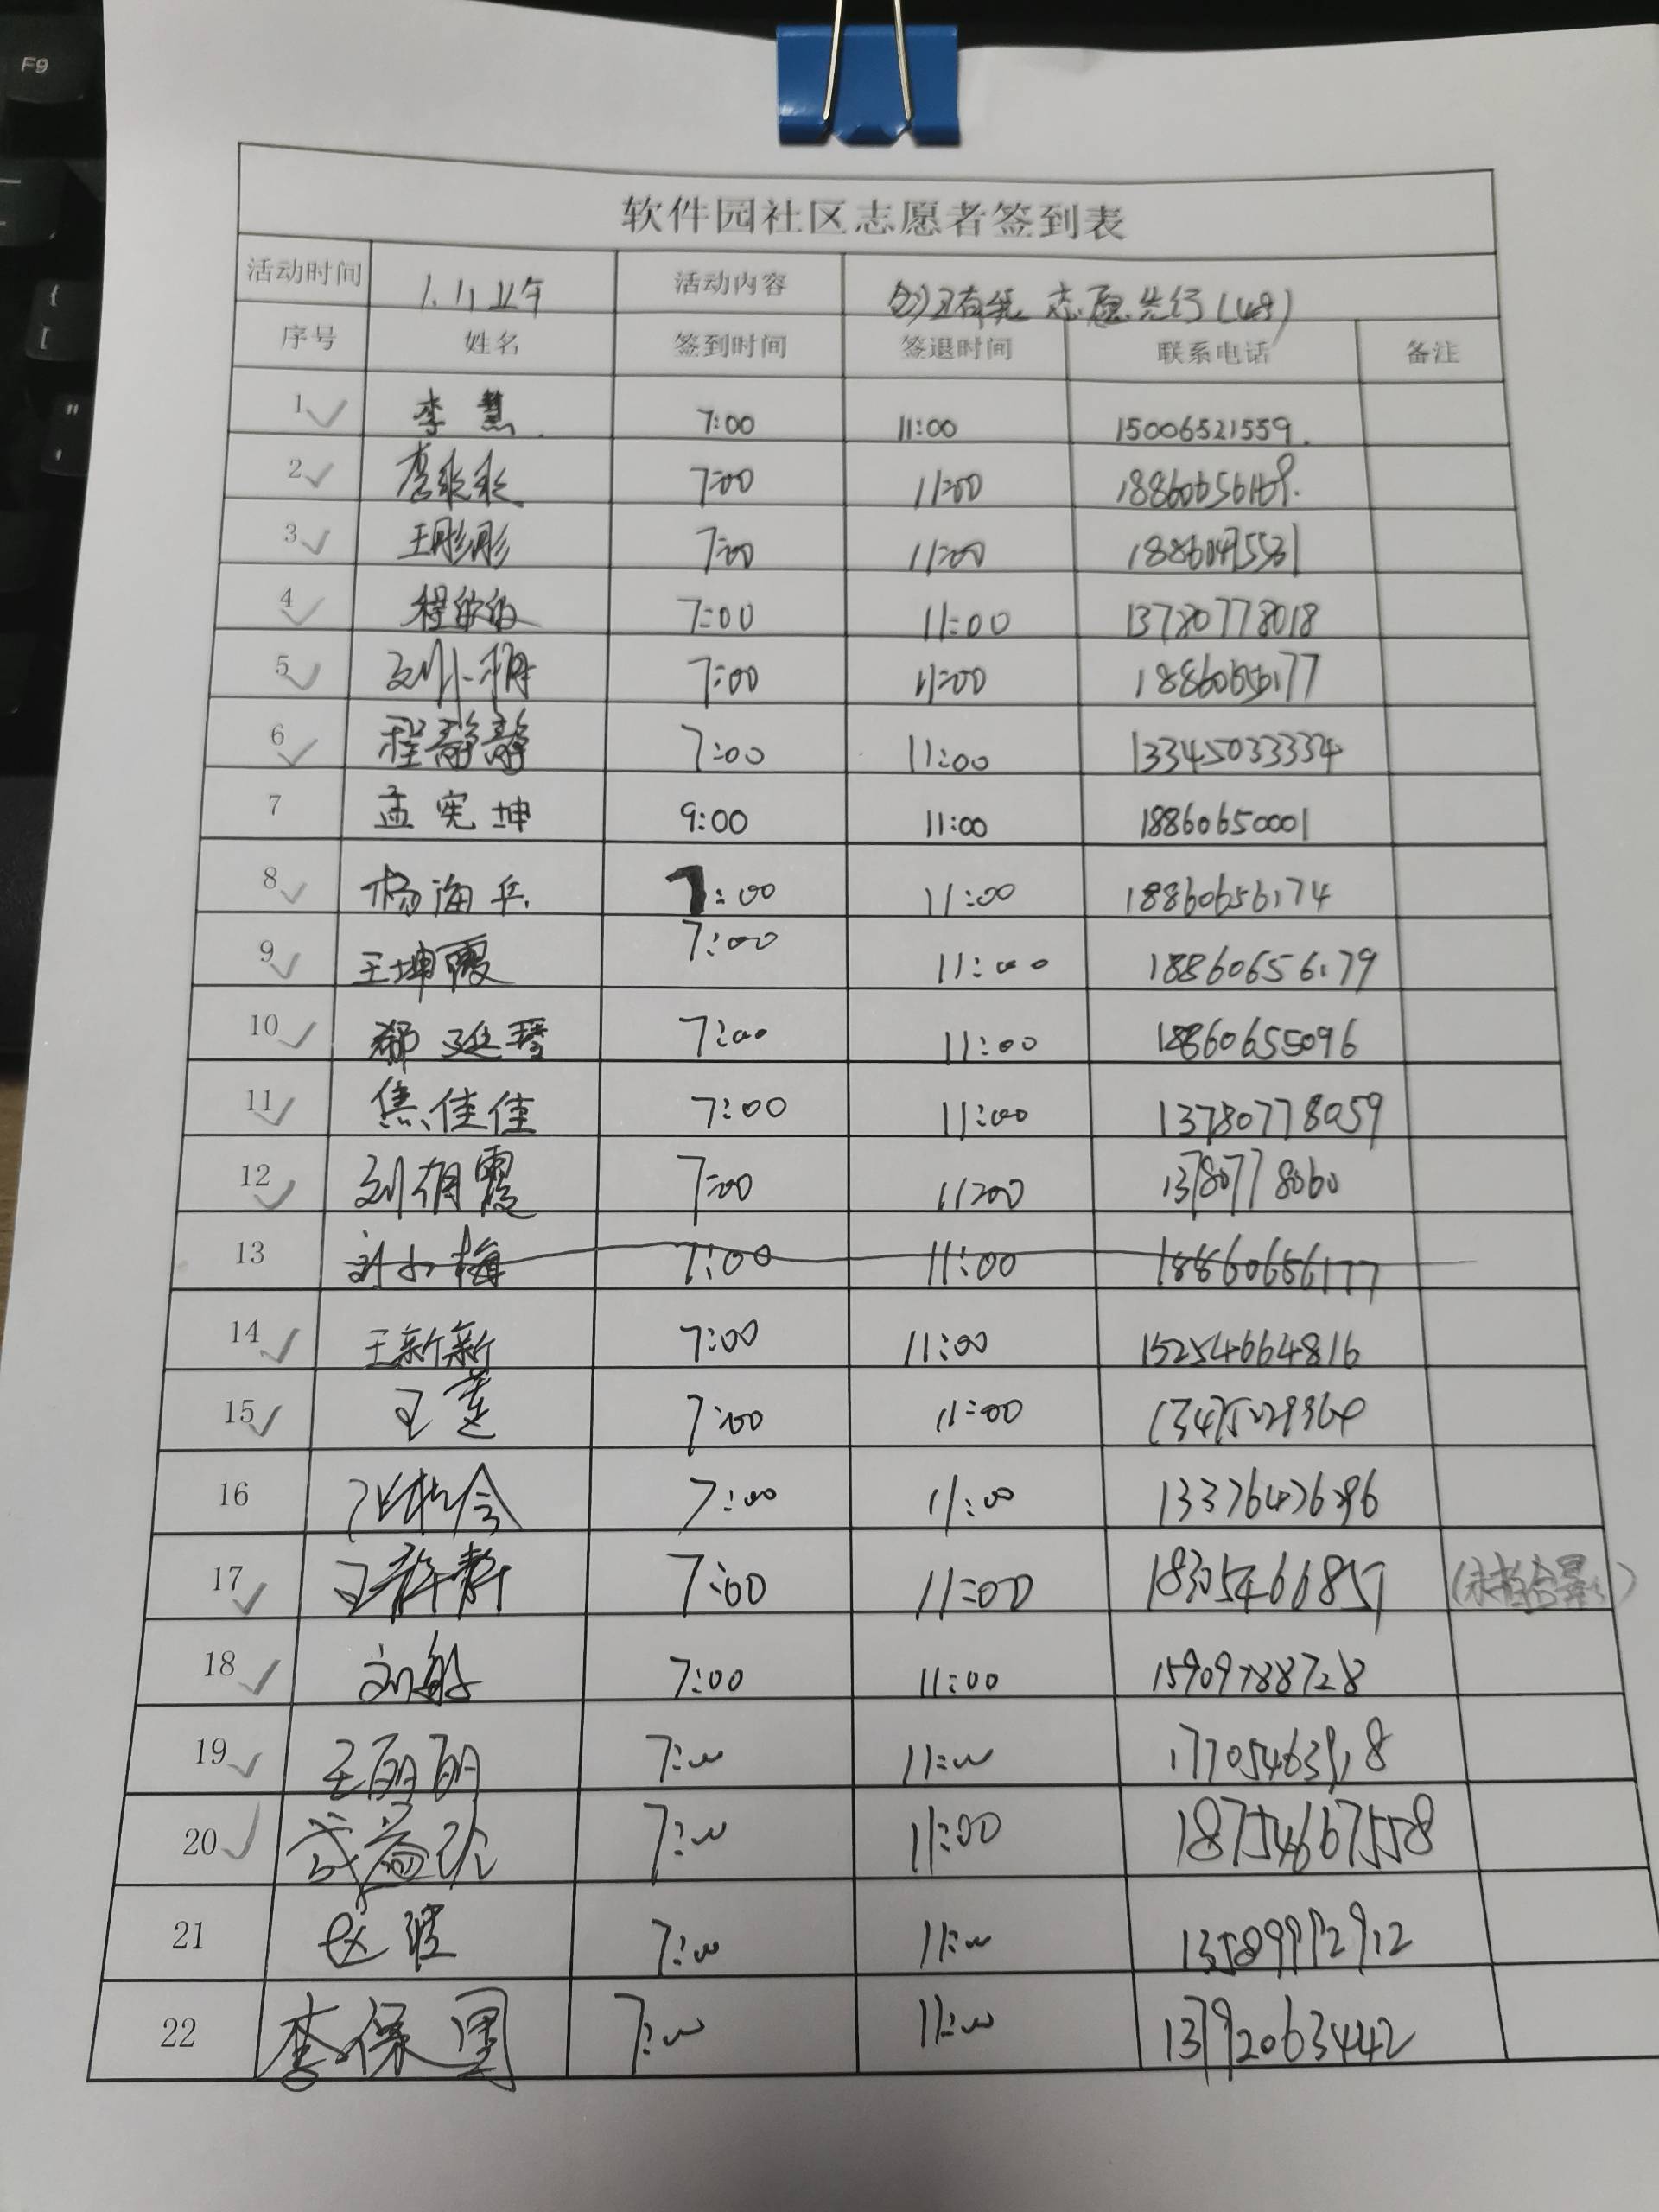 F9
软件园社区志愿者签到表
活动时间 1.11上午 活动内容 创卫有我 志愿先行(48)
序号 姓名 签到时间 签退时间 联系电话 备注
1 李慧 7:00 11:00 15006521559
2 7:00 11:00
3 王彤彤 7:00 11:00
4 7:00 11:00 13780778018
5 刘小梅 7:00 11:00
6 程静静 7:00 11:00 13345033334
7 孟宪坤 9:00 11:00 18860650001
8 杨海兵 7:00 11:00 18860656174
9 王坤霞 7:00 11:00 18860656179
10 郗延琴 7:00 11:00 18860655096
11 焦佳佳 7:00 11:00 13780778059
12 7:00 11:00 13780778060
13 刘小梅 7:00 11:00 18860656177
14 王新新 7:00 11:00 15254664816
15 王莲 7:00 11:00
16 7:00 11:00
17 7:00 11:00
18 刘敏 7:00 11:00 15909788728
19 王丽丽 7:00 11:00 17705463918
20 7:00 11:00 18754667558
21 赵波 7:00 11:00
22 李保国 7:00 11:00